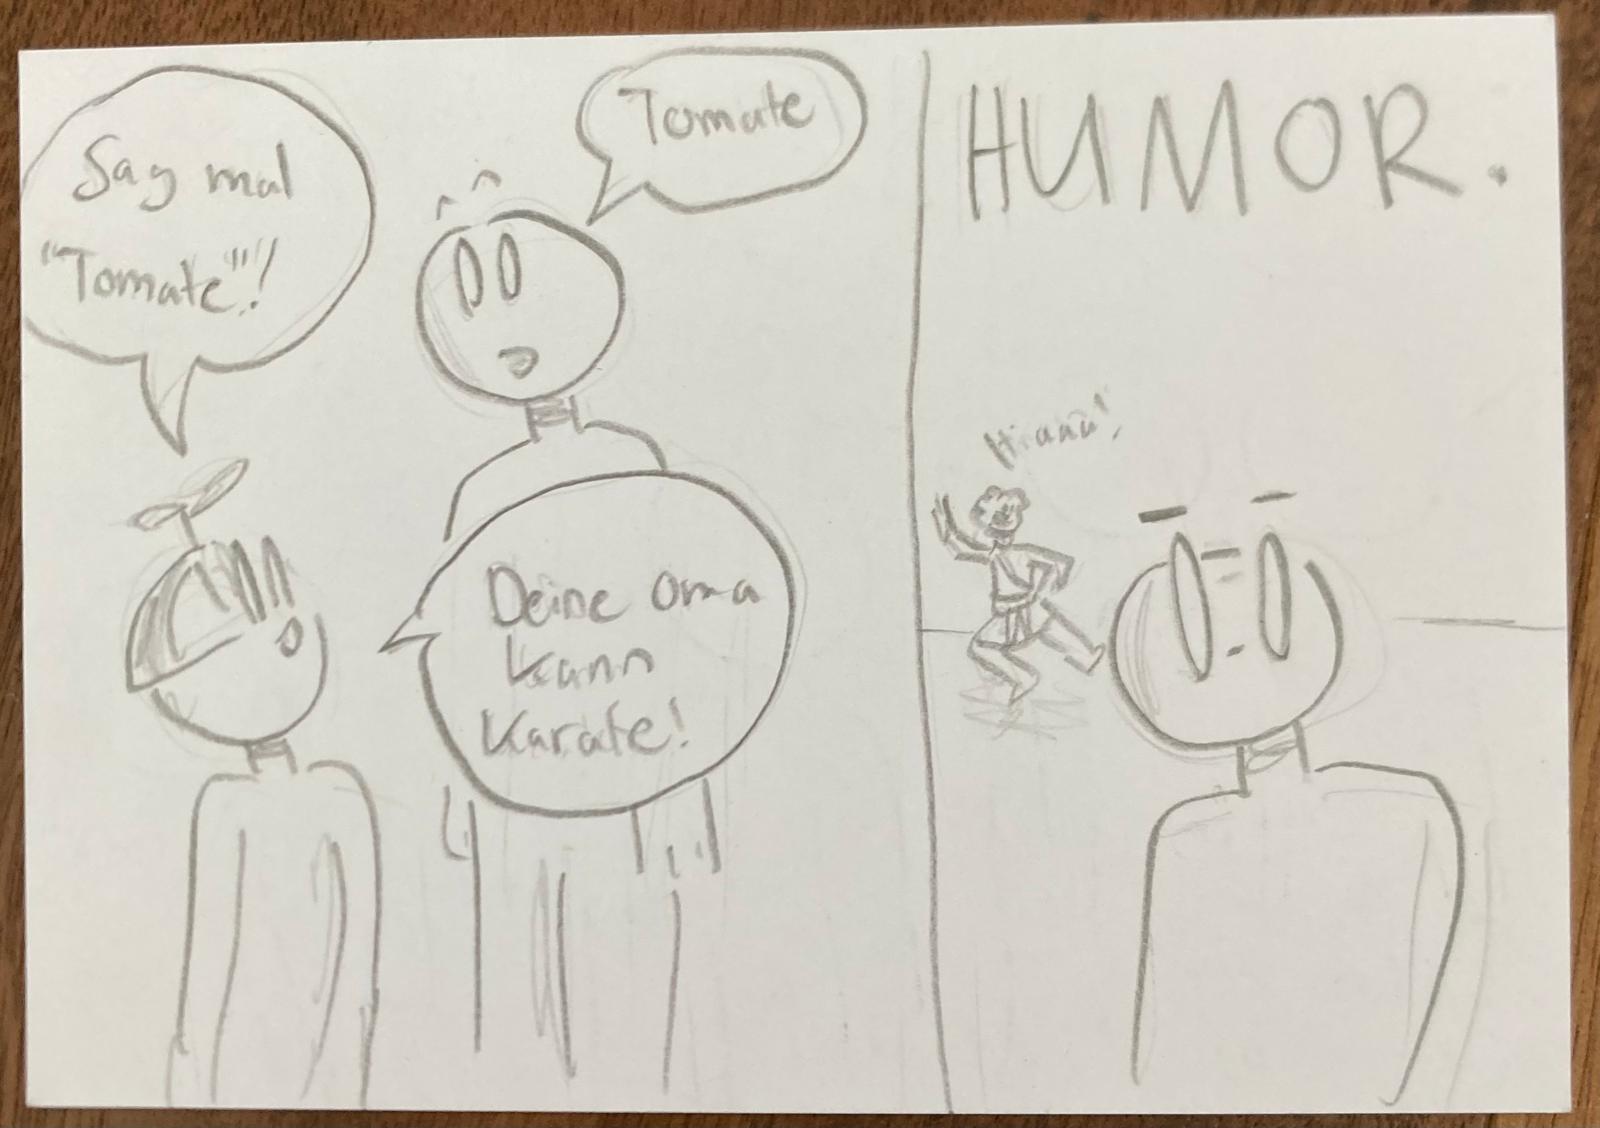 Say mal
"Tomate"!
Tomate
Deine Oma
kann
Karate!
HUMOR.
Hiaaa!